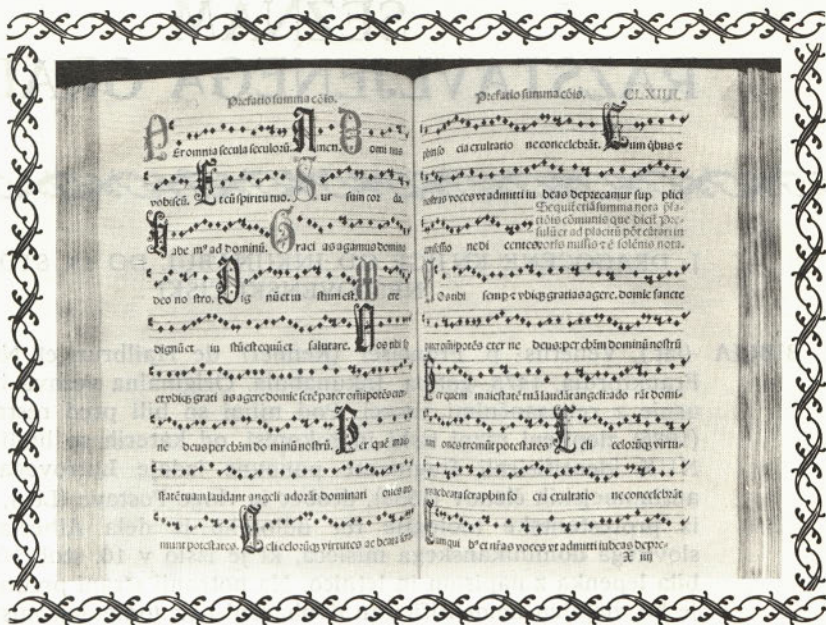 Prefatio summa cõis.
Er omnia secula seculorũ. Amen. Domi nus
vobiscũ. Et cũ spiritu tuo. Sur sum cor da.
Habe mꝰ ad dominũ. Graci as agamus domino
deo no stro. Dig nũ et iu stum est. Uere
dignũ et iu stũ est equũ et salutare. Nos tibi sẽ
et vbiqꝫ grati as agere domie sctẽ pater om̃ipotẽs eter
ne deus per chm̃ do minũ nostrũ. Per quẽ mais
statẽ tuam laudant angeli adorãt dominari ones
munt potestates. Celi celorũqꝫ virtutes ac beata sera
Prefatio summa cõis. CLXIIII.
phin so cia exultatio ne concelebrãt. Cum qĩbus ⁊
nostras voces vt admitti iu beas deprecamur sup plici
confessio ne di centes
De qui etiã summa nota
ctiõis cõmunis que dicit̃
ad placitũ põt cãtari in
votoris missis ⁊ ẽ solẽnis nota.
Nos tibi semp ⁊ vbiqꝫ gratias agere. domie sancte
pater om̃ipotẽs eter ne deus: per chm̃ dominũ nostrũ
Per quem maiestatẽ tuã laudãt angeli: ado rãt domi-
ones tremũt potestates. Celi celorũqꝫ virtu-
beata seraphin so cia exultatio ne concelebrãt
Cum qui bꝰ et nr̃as voces vt admitti iubeas depre-
X iiij